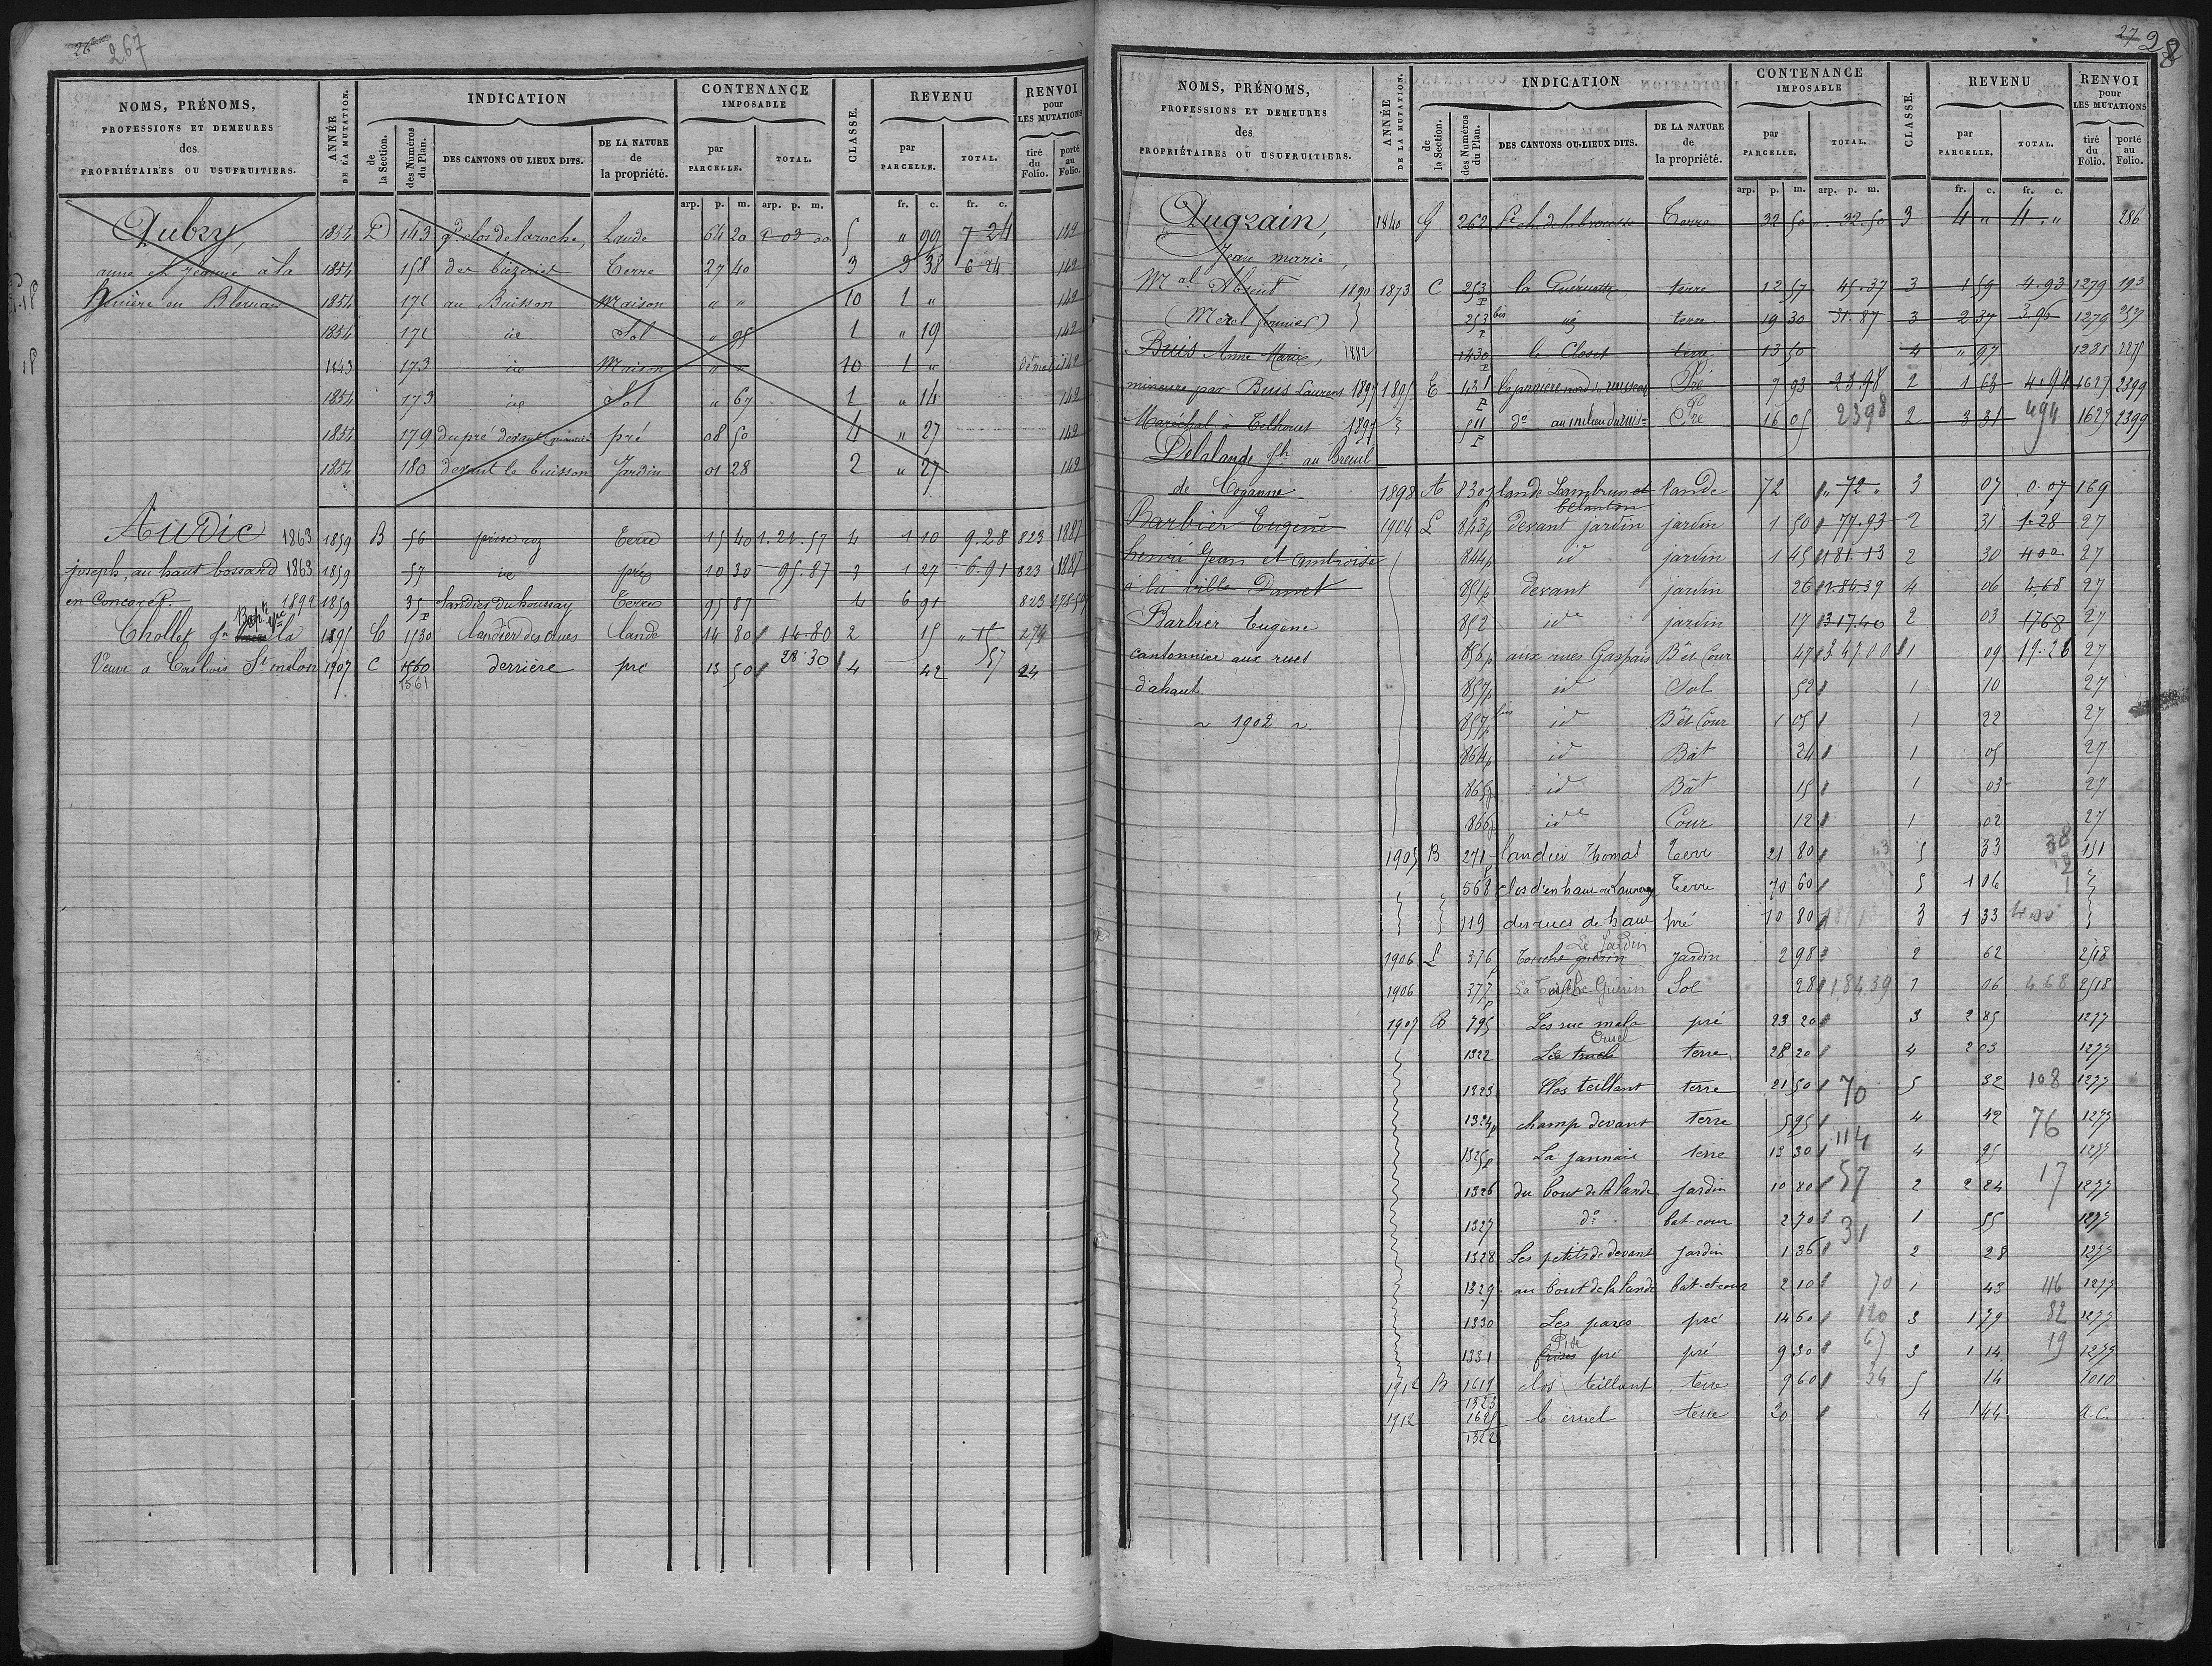 26 267
NOMS, PRÉNOMS, PROFESSIONS ET DEMEURES des PROPRIÉTAIRES OU USUFRUITIERS.
ANNÉE DE LA MUTATION.
INDICATION
de la Section.
des Numéros du Plan.
DES CANTONS OU LIEUX DITS.
DE LA NATURE de la propriété.
CONTENANCE IMPOSABLE
par PARCELLE.
TOTAL.
CLASSE.
REVENU
par PARCELLE.
TOTAL.
RENVOI pour LES MUTATIONS
tiré du Folio.
porté au Folio.
arp. p. m. arp. p. m. fr. c. fr. c.
Aubry, 1854 D 143 gd clos de laroche, Lande 64 20 03 00 5 " 99 7 24 142
anne et Jeanne à la 1854 158 des Terre 27 40 3 3 38 6 24 142
en 1854 171 au Buisson Maison " " 10 1 " 142
1854 171 id Sol " 95 1 " 19 142
1843 173 id Maison " " 10 1 "
1854 173 id Sol " 67 1 " 14 142
1854 179 du pré devant pré 08 50 4 " 27 142
1854 180 devant le buisson Jardin 01 28 2 " 27 142
Audic 1863 1859 B 56 Terre 15 40 1.21.57 4 1 10 9.28 823 1887
joseph, au haut bossard 1863 1859 57 id pré 10 30 95.87 3 1 27 6.91 823 1887
en Concoret. 1892 1859 35 p landier du houssay Terre 95 87 4 6 91 823
Chollet la 1895 C 1530 landier des lande 14 80 14.80 2 15 " 15 274
Veuve a St malon 1907 C 1560 derrière pré 13 50 28.30 4 42 57 24
1561
27 28
NOMS, PRÉNOMS, PROFESSIONS ET DEMEURES des PROPRIÉTAIRES OU USUFRUITIERS.
ANNÉE DE LA MUTATION.
INDICATION
de la Section.
des Numéros du Plan.
DES CANTONS OU LIEUX DITS.
DE LA NATURE de la propriété.
CONTENANCE IMPOSABLE
par PARCELLE.
TOTAL.
CLASSE.
REVENU
par PARCELLE.
TOTAL.
RENVOI pour LES MUTATIONS
tiré du Folio.
porté au Folio.
arp. p. m. arp. p. m. fr. c. fr. c.
Augrain, 1840 G 262 Terre 32 50 32.50 3 4 " 4. " 286
Jean marie
Mal Absent 1890 1873 C 253 p la terre 12 57 45.37 3 1 59 4.93 1279 193
(Merel fermier) 253 bis p id terre 19 30 31.87 3 2 37 3.96 1279 257
Buis Anne Marie, 1882 1430 p le Closet terre 13 50 4 " 97 1281 2275
mineure par Buis Laurent 1897 1895 E 431 p nord du ruisseau Pré 7 93 23.98 2 1 63 4.94 1627 2399
Maréchal à Telhouet 1897 511 p do au milieu du Pré 16 05 2398 2 3 31 494 1627 2399
Delalande au Breuil
de 1898 A 1305 lande Lambrun et lande 72 " 72 " 3 07 0.07 169
Barbier Eugène 1904 L 843p devant jardin jardin 1 50 77.93 2 31 1.28 27
henri Jean et Ambroise 844p id jardin 1 45 81.13 2 30 400 27
à la ville Danet 851p devant jardin 26 1.84.39 4 06 4,68 27
Barbier Eugene 852 ide jardin 17 3 17.40 2 03 1768 27
cantonnier aux rues 856p aux rues Gaspais Bt et Cour 47 3 47.00 1 09 19.26 27
d'ahaut. 857p id Sol 52 1 10 27
~ 1902 ~ 857p bis id Bt et Cour 1 05 1 22 27
864p id Bât 24 1 05 27
865p id Bât 15 1 03 27
866p ide Cour 12 1 02 27
1905 B 271 p landier Thomas Terre 21 80 43 5 33 38 151
568 clos d'en haut ou launay Terre 70 60 5 1 06
119 des rues de haut pré 10 80 3 1 33 4.00
Le Jardin
1906 L 376 Touche guérin Jardin 2 98 2 62 2518
1906 377 p La Touche Guérin Sol 28 1.84.39 1 06 4.68 2518
1907 B 795 Les rue mela pré 23 20 3 2 85 1277
Cruel
1322 Les terre 28 20 4 2 03 1277
1323 Clos teillant terre 21 50 70 5 32 108 1277
1324p champ devant Terre 5 95 4 42 76 1277
1325p La jannaie terre 13 30 114 4 95 1277
1326 du bout de la lande Jardin 10 80 57 2 2 24 17 1277
1327 do bat-cour 2 70 31 1 55 1277
1328 Les petits de devant Jardin 1 36 2 28 1277
1329 au bout de la lande bat-et cour 2 10 70 1 43 116 1277
1330 Les parcs pré 14 60 120 3 1 79 82 1277
1331 pré pré 9 30 67 3 1 14 19 1277
1912 B 1611 clos teillant terre 9 60 34 5 14 1010
1323
1912 1625 le cruel terre 20 4 1 44 A.C.
1322